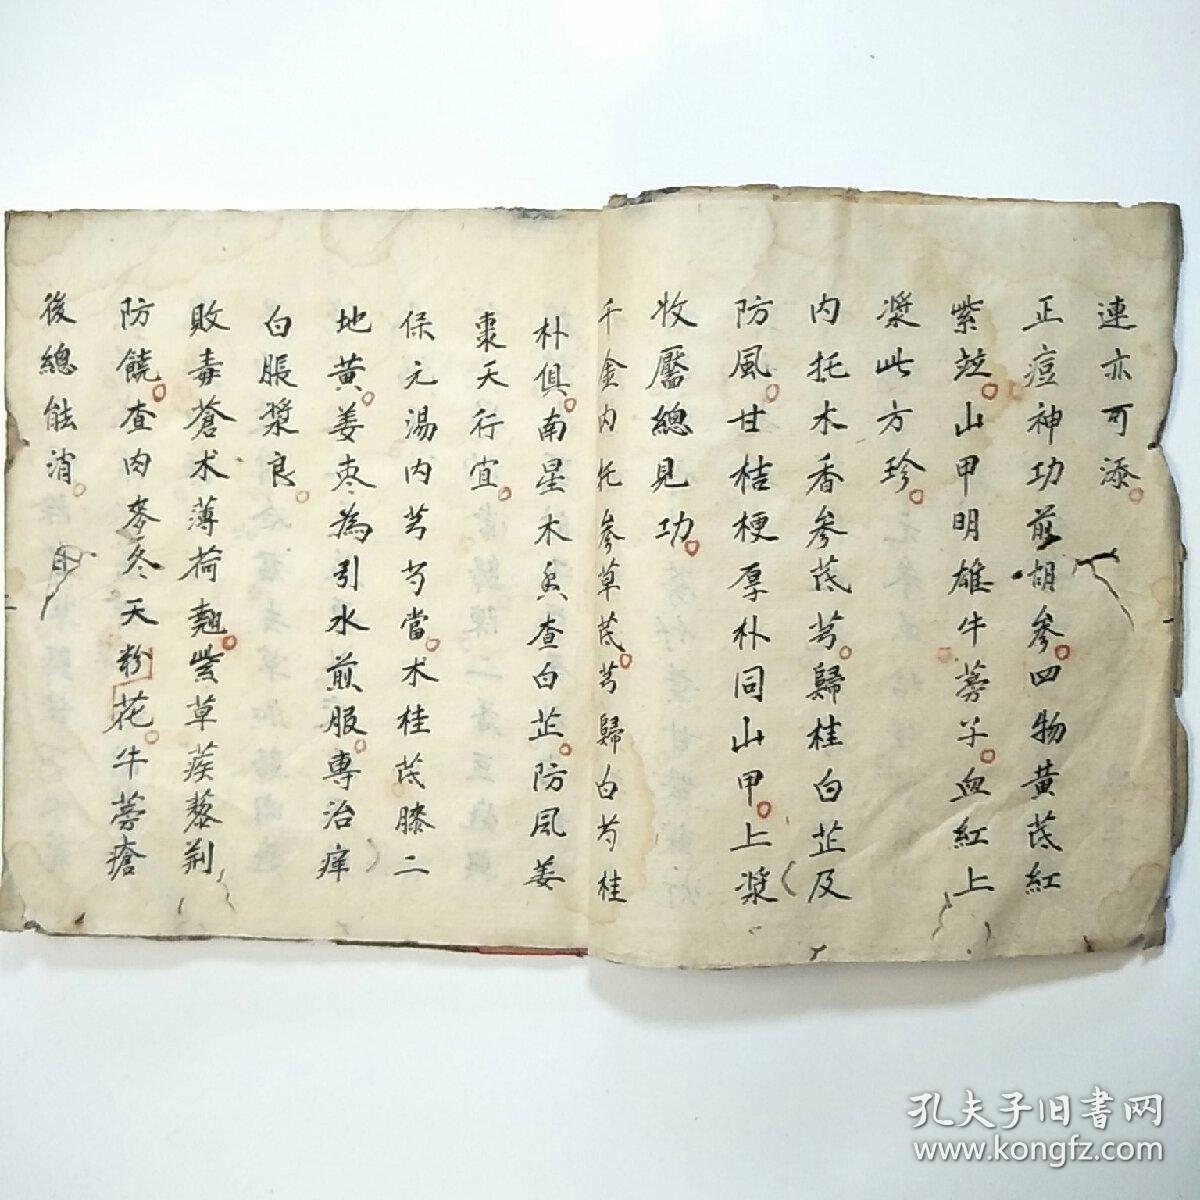 連亦可添。
正痘神功前胡參。四物黃茋紅
紫。山甲明雄牛蒡子。血紅上
漿此方珍。
內托木香參茋芎。歸桂白芷及
防風。甘桔梗厚朴同山甲。上漿
收靨總見功。
千金內托參草茋。芎歸白芍桂
朴俱。南星木查白芷。防風姜
棗天行宜。
保元湯內芎芍當。朮桂茋膝二
地黃。姜枣為引水煎服。專治痒
白脹漿良。
敗毒蒼朮薄荷翹。紫草蒺藜荊
防饒。查肉麥冬天粉花。牛蒡瘡
後總能消。
孔夫子旧书网
www.kongfz.com